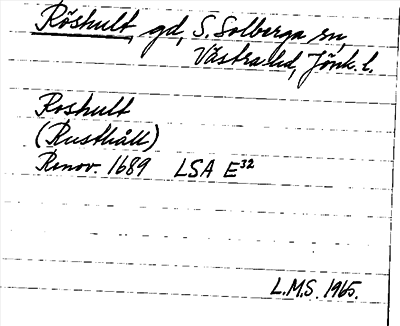 Röshult, gd, S. Solberga sn,
Västra hd, Jönk. l.
Roshult
(Rusthåll)
Renov. 1689 LSA E³²
L.M.S. 1965.